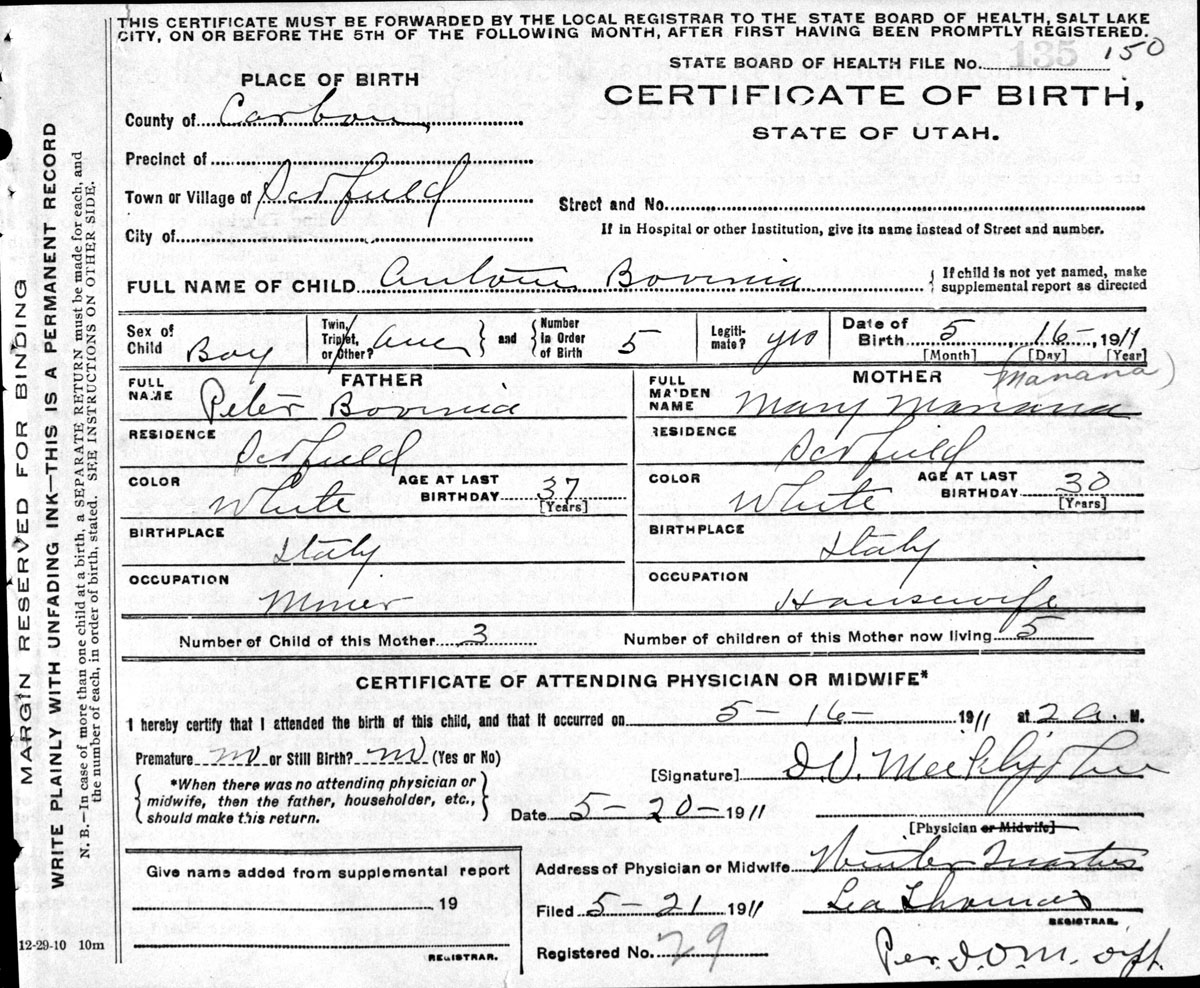 THIS CERTIFICATE MUST BE FORWARDED BY THE LOCAL REGISTRAR TO THE STATE BOARD OF HEALTH, SALT LAKE
CITY, ON OR BEFORE THE 5TH OF THE FOLLOWING MONTH, AFTER FIRST HAVING BEEN PROMPTLY REGISTERED.
MARGIN RESERVED FOR BINDING
WRITE PLAINLY WITH UNFADING INK—THIS IS A PERMANENT RECORD
N. B.—In case of more than one child at a birth, a SEPARATE RETURN must be made for each, and
the number of each, in order of birth, stated. SEE INSTRUCTIONS ON OTHER SIDE.
STATE BOARD OF HEALTH FILE No. 135 150
CERTIFICATE OF BIRTH,
STATE OF UTAH.
PLACE OF BIRTH
County of Carbon
Precinct of
Town or Village of Scofield
City of
Street and No.
If in Hospital or other Institution, give its name instead of Street and number.
FULL NAME OF CHILD Bovinia
If child is not yet named, make
supplemental report as directed
Sex of Child Boy Twin, Triplet, or Other? One and Number in Order of Birth 5 Legitimate? yes Date of Birth 5 16 1911
[Month] [Day] [Year]
FATHER
FULL NAME Peter Bovinia
RESIDENCE Scofield
COLOR White AGE AT LAST BIRTHDAY 37 [Years]
BIRTHPLACE Italy
OCCUPATION Miner
MOTHER (Manana)
FULL MAIDEN NAME Mary Manana
RESIDENCE Scofield
COLOR White AGE AT LAST BIRTHDAY 30 [Years]
BIRTHPLACE Italy
OCCUPATION Housewife
Number of Child of this Mother 3 Number of children of this Mother now living 5
CERTIFICATE OF ATTENDING PHYSICIAN OR MIDWIFE*
I hereby certify that I attended the birth of this child, and that it occurred on 5-16- 1911 at 2 a. M.
Premature no or Still Birth? no (Yes or No)
*When there was no attending physician or
midwife, then the father, householder, etc.,
should make this return.
[Signature]
Date 5-20-1911
[Physician or Midwife]
Give name added from supplemental report
19
REGISTRAR.
Address of Physician or Midwife Winter Quarters
Filed 5-21 1911 Thomas
REGISTRAR.
Registered No. 29
Per
12-29-10 10m